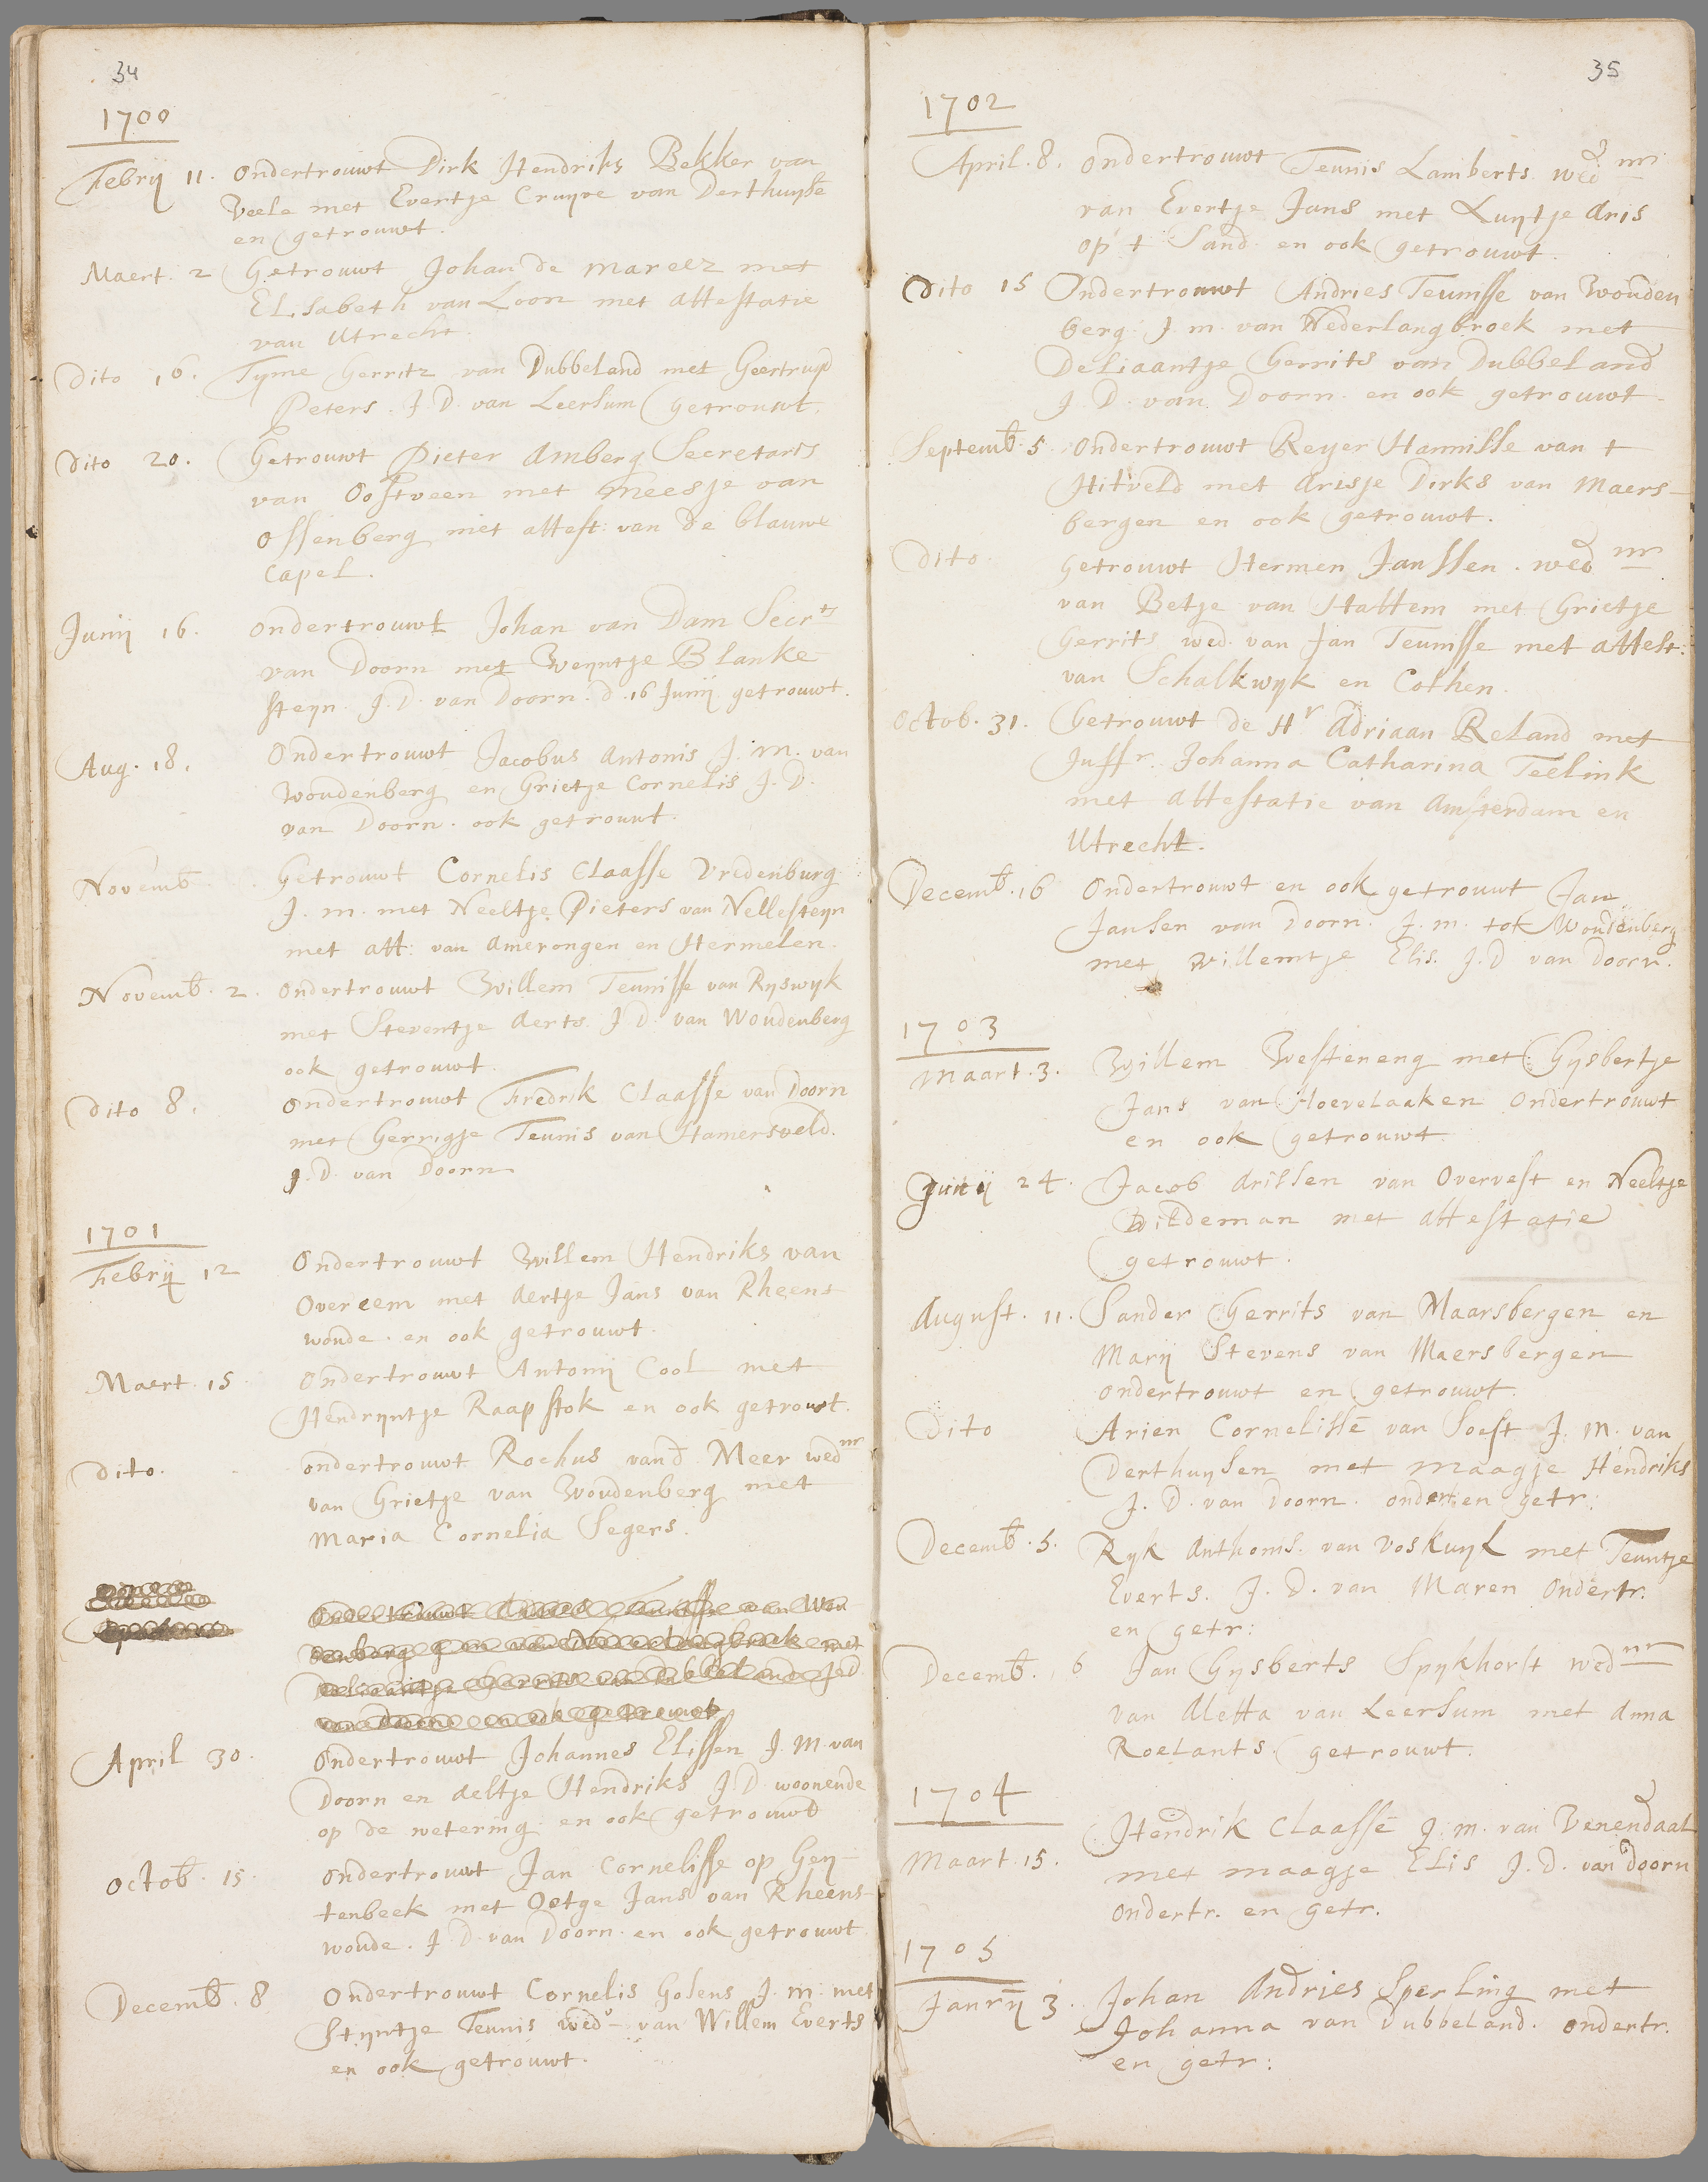 34
1700
Febrij 11. Ondertrouwt Dirk Hendriks Bekker van
Veele met Evertje Cruyve van Derthuyse
en getrouwt.
Maert. 2 Getrouwt Johan de mareez met
Elisabeth van Loon met attestatie
van Utrecht.
Dito 16. Tijme Gerritz van Dubbeland met Geertruyd
Peters. J. D. van Leersum getrouwt.
Dito 20. Getrouwt Pieter Amberg Secretaris
van Oostveen met meesje van
Ossenberg met attest: van de blauwe
Capel.
Junij 16. ondertrouwt Johan van Dam Secrts
van Doorn met Weyntje Blanke
steyn. J. D. van Doorn. d. 16 Junij getrouwt.
Aug. 18. Ondertrouwt Jacobus Antonis J. m. van
Woudenberg en Grietje Cornelis J. D.
van Doorn. ook getrouwt.
Novemb Getrouwt Cornelis Claasse Vredenburg
J. m. met Neeltje Pieters van Nellesteyn
met att: van Amerongen en Hermelen.
Novemb. 2. Ondertrouwt Willem Teunisse van Ryswyk
met Steventje Aerts. J. D. van Woudenberg
ook getrouwt.
Dito 8. Ondertrouwt Fredrik Claasse van Doorn
met Gerrigje Teunis van Hamersveld.
J. D. van Doorn
1701
Febrij 12 Ondertrouwt Willem Hendriks van
Overeem met Aertje Jans van Rhéens
woude. en ook getrouwt.
Maert. 15 Ondertrouwt Antonij Cool met
Hendryntje Raapstok en ook getrouwt.
Dito. ondertrouwt Rochus vand Meer wednr
van Grietje van Woudenberg met
Maria Cornelia Segers.
Ondertrouwt Andries Teunisse van Wou
denberg J m van Nederlangbroek met
Deliaantje Gerrits van Dubbeland J D
van Doorn en ook getrouwt
April 30. Ondertrouwt Johannes Elissen J. M. van
Doorn en Aeltje Hendriks J. D. woonende
op de wetering. en ook getrouwt
Octob. 15. Ondertrouwt Jan Cornelisse op Gey-
tenbeek met Oetge Jans van Rheens-
woude. J. D. van Doorn. en ook getrouwt
Decemb. 8 Ondertrouwt Cornelis Golens J. m. met
Styntje Teunis wede van Willem Everts
en ook getrouwt.
35
1702
April. 8. Ondertrouwt Teunis Lamberts wednr
van Evertje Jans met Luytje Aris
op 't Sand. en ook getrouwt.
Dito 15 Ondertrouwt Andries Teunisse van Wouden
berg. J. m. van Nederlangbroek met
Deliaantje Gerrits van Dubbeland
J. D. van Doorn. en ook getrouwt
Septemb. 5. Ondertrouwt Reyer Hannisse van t
Hitveld met Arisje Dirks van Maers-
bergen en ook getrouwt.
Dito. Getrouwt Hermen Janssen. wednr
van Betje van Hattem met Grietje
Gerrits wed. van Jan Teunisse met attest:
van Schalkwyk en Cothen.
Octob. 31. Getrouwt de Hr Adriaan Reland met
Juffr. Johanna Catharina Teelink
met attestatie van Amsterdam en
Utrecht.
Decemb. 16 Ondertrouwt en ook getrouwt Jan
Jansen van Doorn. J. m. tot Woudenberg
met Willemtje Elis. J. D van Doorn.
1703
Maart. 3. Willem Westeneng met Gysbertje
Jans van Hoevelaaken Ondertrouwt
en ook getrouwt
Junij 24. Jacob Arissen van Overvest en Neeltje
Wildeman met attestatie
getrouwt.
August. 11. Sander Gerrits van Maarsbergen en
Marij Stevens van Maersbergen
ondertrouwt en getrouwt.
Dito Arien Cornelisse van Soest J. m. van
Derthuysen met Maagje Hendriks
J. D. van Doorn. ondertr en getr:
Decemb. 5. Ryk Anthonis. van Voskuyl met Teuntje
Everts. J. D. van Maren Ondertr.
en getr:
Decemb. 6 Jan Gysberts Spykhorst wednr
van Aletta van Leersum met Anna
Roelants. getrouwt.
1704
Maart. 15. Hendrik Claasse J. m. van Venendaal
met maagje Elis J. D. van Doorn
Ondertr. en getr.
1705
Janrij 3. Johan Andries Sperling met
Johanna van Dubbeland. ondertr.
en getr: